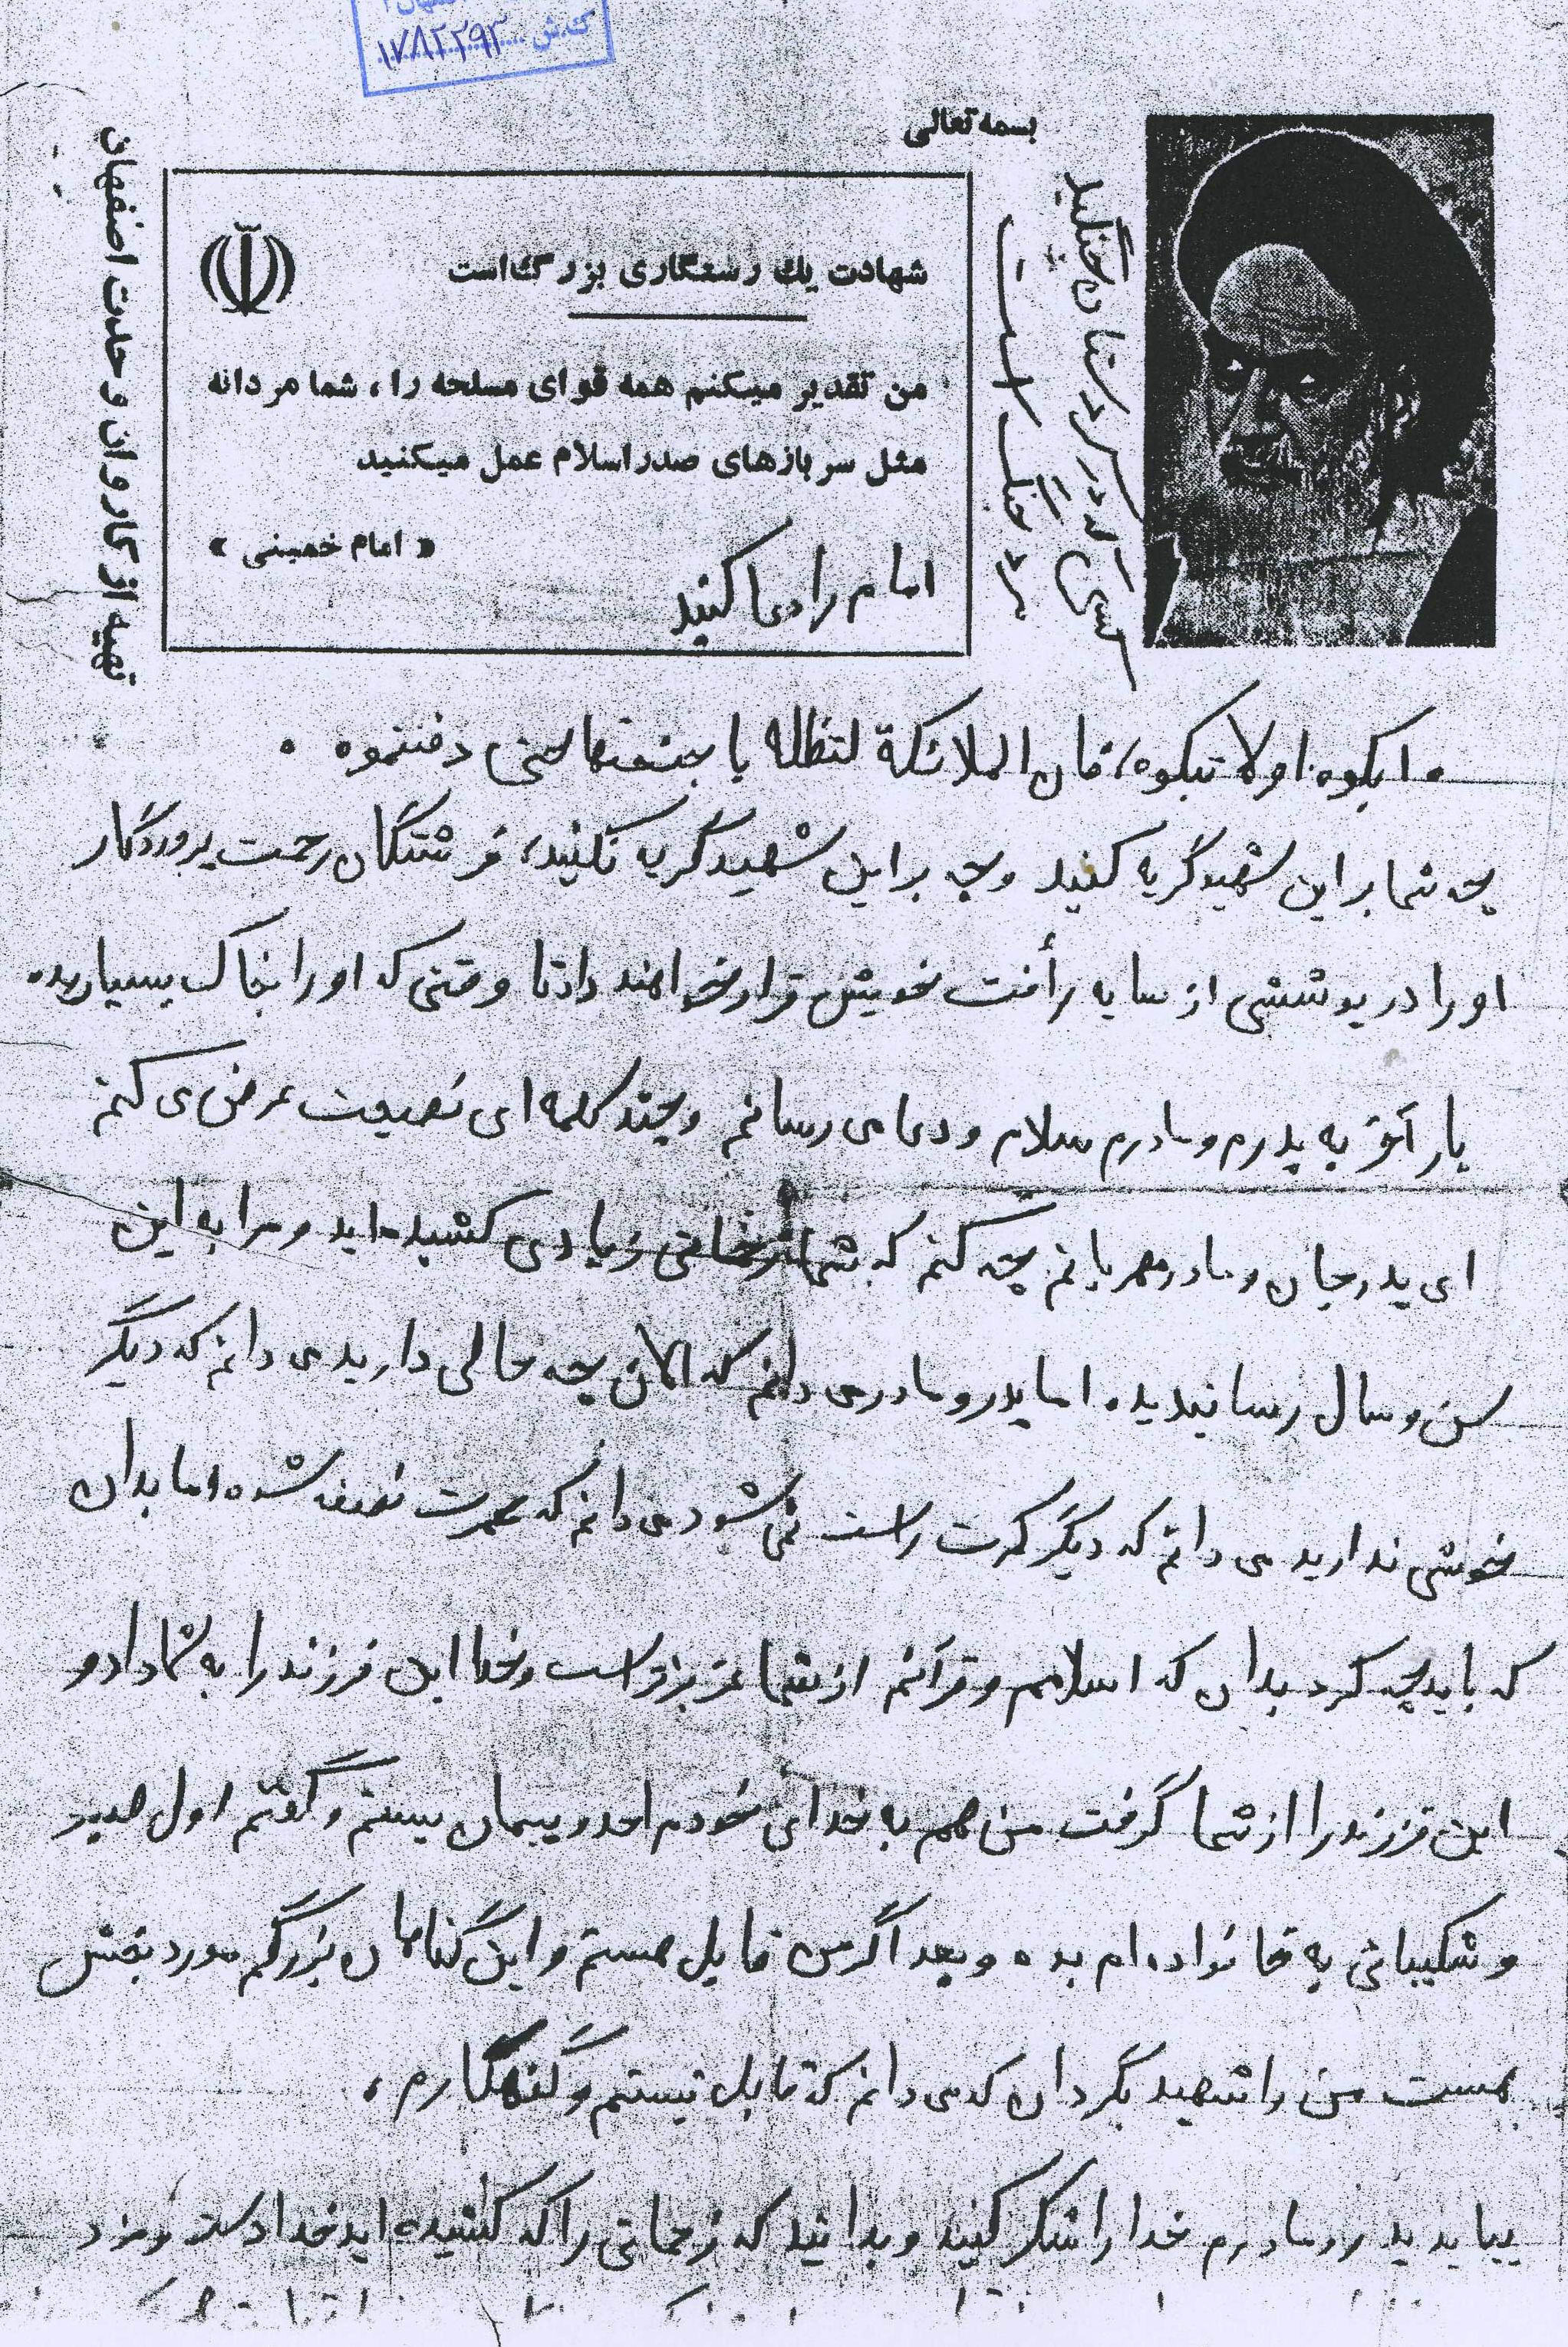 ک.ش ۱۷۸۲۲۹۳
بسمه تعالی
شهادت یك رستگاری بزرگ است
من تقدیر میکنم همه قوای مسلحه را ، شما مردانه
مثل سربازهای صدر اسلام عمل میکنید
« امام خمینی »
امام را دعا کنید
کسی که در کردستان بجنگد
مرد جنگ است
تهیه از کاروان وحدت اصفهان
ابکوه اولا تبکوه، فان الملائکة لتظله با جنحتها حتی دفنتموه .
چه شما بر این شهید گریه کنید و چه بر این شهید گریه نکنید، فرشتگان رحمت پروردگار
او را در پوششی از سایه رأفت خویش قرار خواهند داد تا وقتی که او را بخاک بسپارید.
بار آخر به پدرم و مادرم سلام و دعا می رسانم و چند کلمه ای نصیحت عرض ی کنم
ای پدر جان و مادر مهربانم چه کنم که شما زحماتی زیادی کشیده اید و مرا به این
سن و سال رسانیدید. اما پدر و مادر می دانم که الان چه حالی دارید می دانم که دیگر
خوشی ندارید می دانم که دیگر کمرت راست نمی شود می دانم که عمرت نصفه شده اما بدان
که باید چه کرد بدان که اسلامم و قرآنم از شما عزیزتر است و خدا این فرزند را به شما داد و
این فرزند را از شما گرفت من هم به خدائی خودم احد و پیمان بستم و گفتم اول صبر
و شکیبائی به خانواده ام بده و بعد اگر من قابل هستم و این گناهان بزرگم مورد بخش
هست من را شهید بگردان که می دانم که قابل نیستم و گنهکارم ،
بیاید پدر و مادرم خدا را شکر کنید و بدانید که زحماتی را که کشیده اید خدا دست مزد